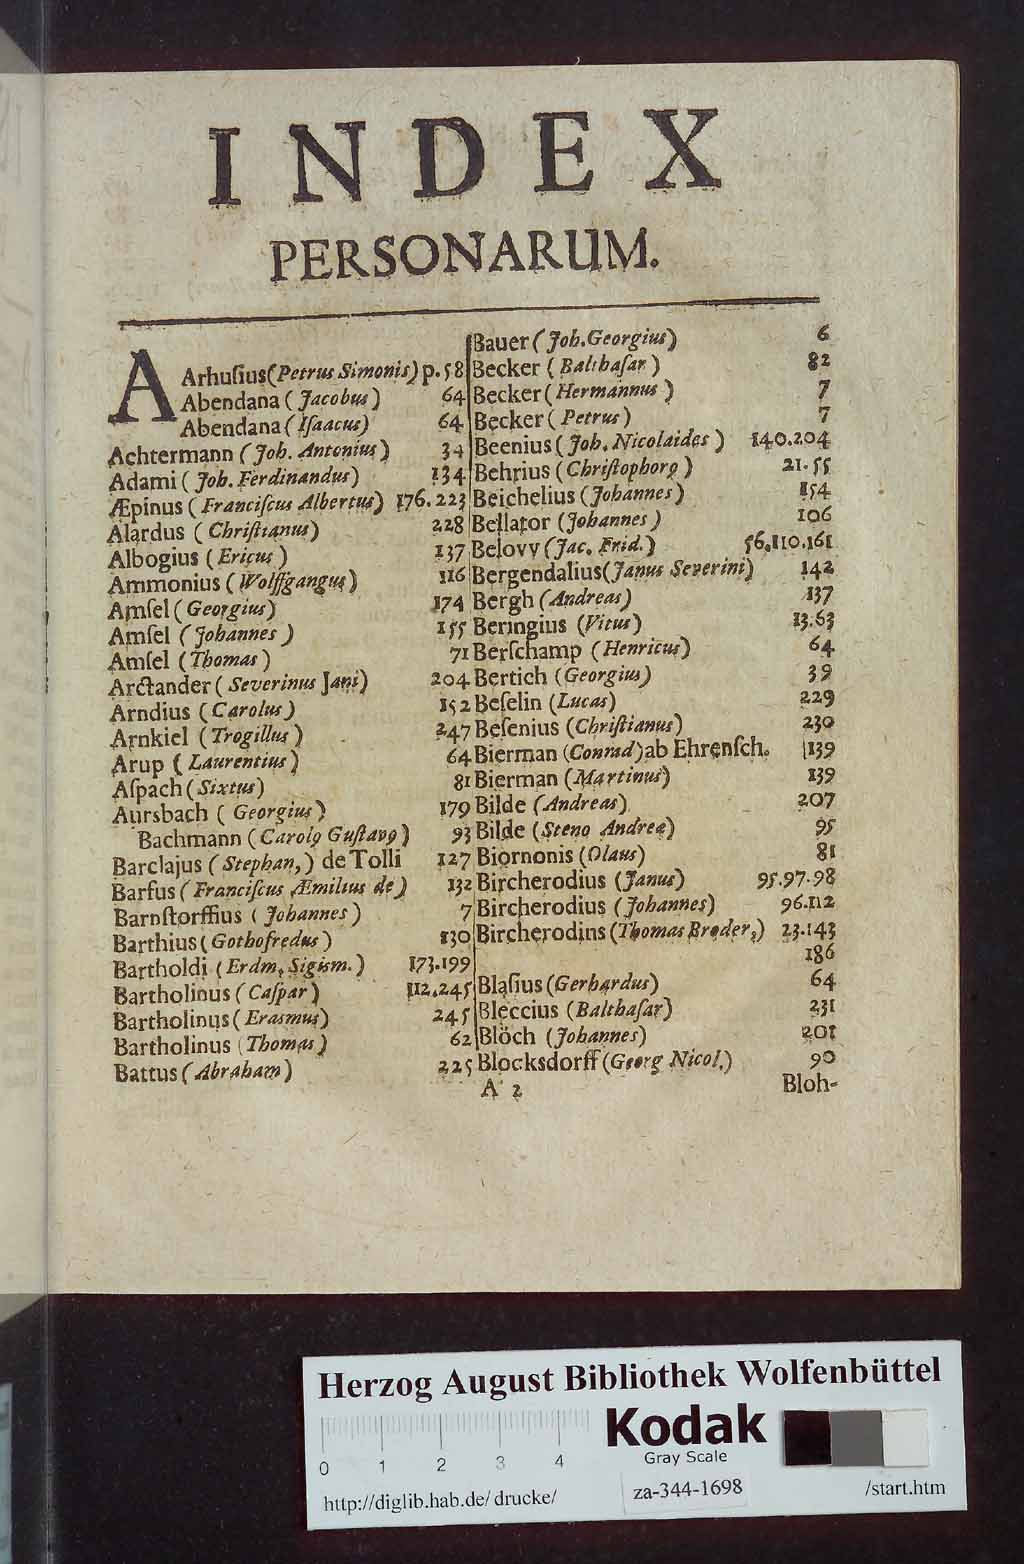 INDEX
PERSONARUM.
AArhuſius (Petrus Simonis) p. 58
Abendana (Jacobus) 64
Abendana (Iſaacus) 64
Achtermann (Joh. Antonius) 34
Adami (Joh. Ferdinandus) 134
Æpinus (Franciſcus Albertus) 176. 223
Alardus (Chriſtianus) 228
Albogius (Ericus) 137
Ammonius (Wolffgangus) 116
Amſel (Georgius) 174
Amſel (Johannes) 155
Amſel (Thomas) 71
Arctander (Severinus Jani) 204
Arndius (Carolus) 152
Arnkiel (Trogillus) 247
Arup (Laurentius) 64
Aſpach (Sixtus) 81
Aursbach (Georgius) 179
Bachmann (Carolꝰ Guſtavꝰ) 93
Barclajus (Stephan,) de Tolli 127
Barfus (Franciſcus Æmilius de) 132
Barnſtorffius (Johannes) 7
Barthius (Gothofredus) 130
Bartholdi (Erdm. Sigism.) 173.199
Bartholinus (Caſpar) 112.245
Bartholinus (Erasmus) 245
Bartholinus (Thomas) 62
Battus (Abraham) 225
Bauer (Joh. Georgius) 6
Becker (Balthaſar) 82
Becker (Hermannus) 7
Becker (Petrus) 7
Beenius (Joh. Nicolaides) 140.204
Behrius (Chriſtophorꝰ) 21.55
Beichelius (Johannes) 154
Bellator (Johannes) 106
Belovv (Jac. Frid.) 56.110.161
Bergendalius (Janus Severini) 142
Bergh (Andreas) 137
Beringius (Vitus) 13.63
Berſchamp (Henricus) 64
Bertich (Georgius) 39
Beſelin (Lucas) 229
Beſenius (Chriſtianus) 230
Bierman (Conrad) ab Ehrenſch. 139
Bierman (Martinus) 139
Bilde (Andreas) 207
Bilde (Steno Andreæ) 95
Biornonis (Olaus) 81
Bircherodius (Janus) 95.97.98
Bircherodius (Johannes) 96.112
Bircherodins (Thomas Broder,) 23.143
186
Blaſius (Gerhardus) 64
Bleccius (Balthaſar) 231
Blöch (Johannes) 201
Blocksdorff (Georg Nicol.) 90
A 2 Bloh-
Herzog August Bibliothek Wolfenbüttel
Kodak
Gray Scale
0 1 2 3 4
http://diglib.hab.de/drucke/ za-344-1698 /start.htm